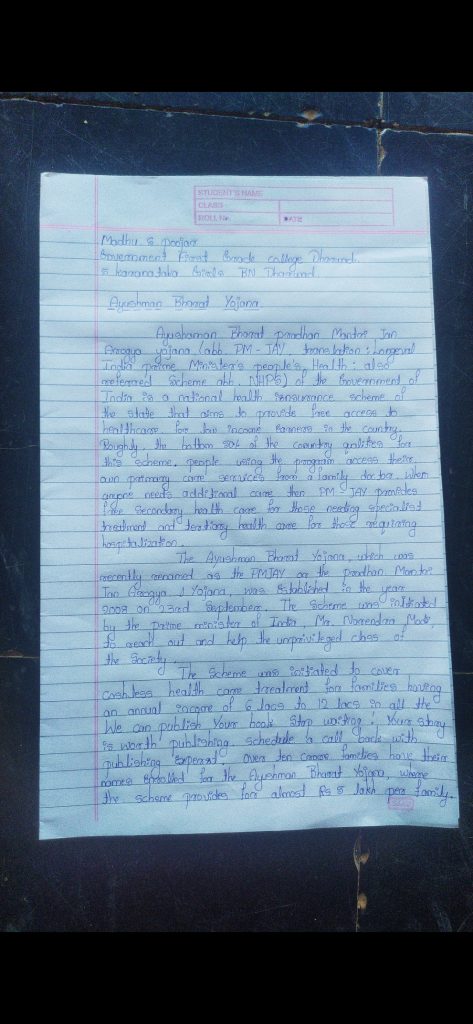 STUDENT'S NAME
CLASS
ROLL No. DATE
Madhu S poojar
Government First Grade college Dharwad
5 karanataka Girls BN Dharwad
Ayushman Bharat Yojana
Ayushaman Bharat pradhan Mantri Jan
Arogya yojana (abb. PM-JAY, translation:
India prime Minister's people's Health: also
referred Scheme abb. NHPS) of the Government of
India is a national health insurance scheme of
the state that aims to provide free access to
healthcare for low income earners in the country.
Roughly the bottom 50% of the country qualifies for
this scheme. people using the program access their
own primary care services from a family doctor. When
anyone needs additional care then PM JAY provides
free Secondary health care for those needing specialist
treatment and tertiary health care for those requiring
hospitalization.
The Ayushman Bharat Yojana, which was
recently renamed as the PMJAY or the Pradhan Mantri
Jan Arogya Yojana, was Established in the year
2008 on 23rd September. The Scheme was initiated
by the prime minister of India, Mr. Narrendra Modi,
to reach out and help the unprivileged class of
the Society.
The Scheme was initiated to cover
Cashless health care treatment for families having
an annual income of 6 lacs to 12 lacs in all the
We can publish Your book Stop waiting! Your story
is worth publishing. schedule a call back with
publishing Experst! Over ten families have their
names Enrolled for the Ayushman Bharat Yojana, where
the scheme provides for almost Rs 5 lakh per family.